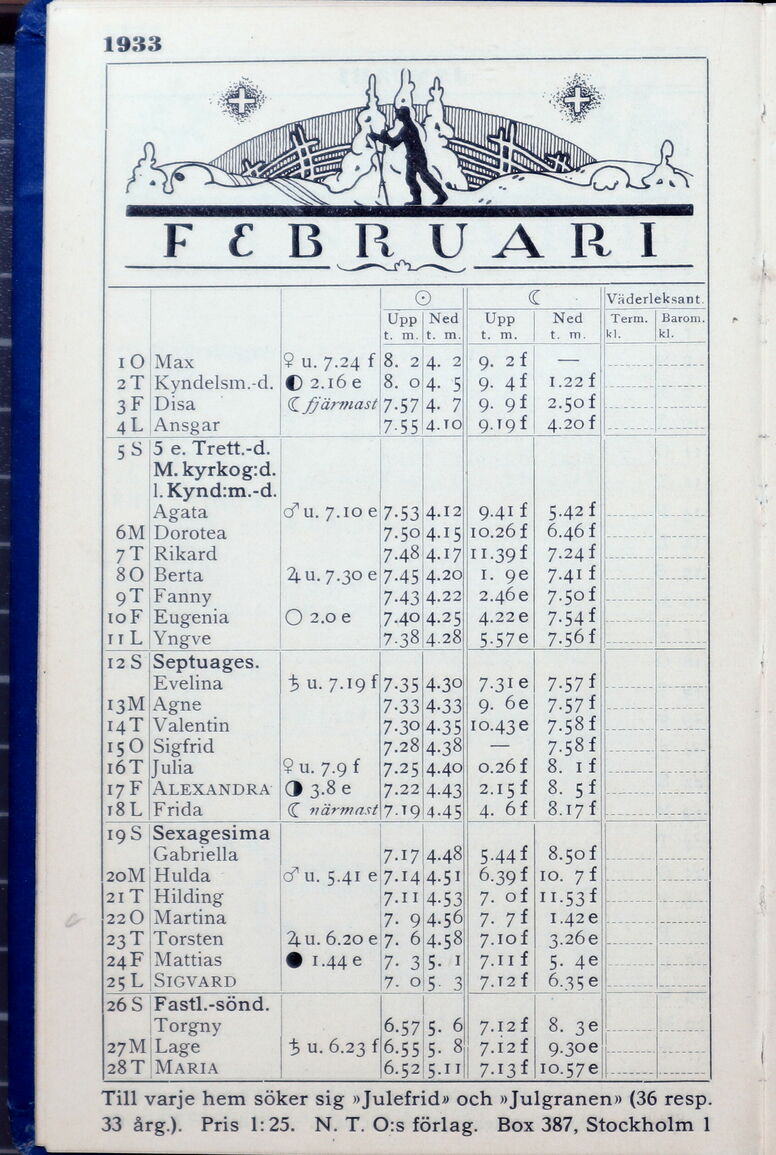 1933
FEBRUARI
☉ ☾ Väderleksant.
Upp Ned Upp Ned Term. Barom.
t. m. t. m. t. m. t. m. kl. kl.
1 O Max ♀ u. 7.24 f 8. 2 4. 2 9. 2 f —
2 T Kyndelsm.-d. ◐ 2.16 e 8. 0 4. 5 9. 4 f 1.22 f
3 F Disa ☾ fjärmast 7.57 4. 7 9. 9 f 2.50 f
4 L Ansgar 7.55 4.10 9.19 f 4.20 f
5 S 5 e. Trett.-d.
M. kyrkog:d.
l. Kynd:m.-d.
Agata ♂ u. 7.10 e 7.53 4.12 9.41 f 5.42 f
6 M Dorotea 7.50 4.15 10.26 f 6.46 f
7 T Rikard 7.48 4.17 11.39 f 7.24 f
8 O Berta ♃ u. 7.30 e 7.45 4.20 1. 9 e 7.41 f
9 T Fanny 7.43 4.22 2.46 e 7.50 f
10 F Eugenia ○ 2.0 e 7.40 4.25 4.22 e 7.54 f
11 L Yngve 7.38 4.28 5.57 e 7.56 f
12 S Septuages.
Evelina ♄ u. 7.19 f 7.35 4.30 7.31 e 7.57 f
13 M Agne 7.33 4.33 9. 6 e 7.57 f
14 T Valentin 7.30 4.35 10.43 e 7.58 f
15 O Sigfrid 7.28 4.38 — 7.58 f
16 T Julia ♀ u. 7.9 f 7.25 4.40 0.26 f 8. 1 f
17 F ALEXANDRA ◑ 3.8 e 7.22 4.43 2.15 f 8. 5 f
18 L Frida ☾ närmast 7.19 4.45 4. 6 f 8.17 f
19 S Sexagesima
Gabriella 7.17 4.48 5.44 f 8.50 f
20 M Hulda ♂ u. 5.41 e 7.14 4.51 6.39 f 10. 7 f
21 T Hilding 7.11 4.53 7. 0 f 11.53 f
22 O Martina 7. 9 4.56 7. 7 f 1.42 e
23 T Torsten ♃ u. 6.20 e 7. 6 4.58 7.10 f 3.26 e
24 F Mattias ● 1.44 e 7. 3 5. 1 7.11 f 5. 4 e
25 L SIGVARD 7. 0 5. 3 7.12 f 6.35 e
26 S Fastl.-sönd.
Torgny 6.57 5. 6 7.12 f 8. 3 e
27 M Lage ♄ u. 6.23 f 6.55 5. 8 7.12 f 9.30 e
28 T MARIA 6.52 5.11 7.13 f 10.57 e
Till varje hem söker sig »Julefrid» och »Julgranen» (36 resp.
33 årg.). Pris 1:25. N. T. O:s förlag. Box 387, Stockholm 1